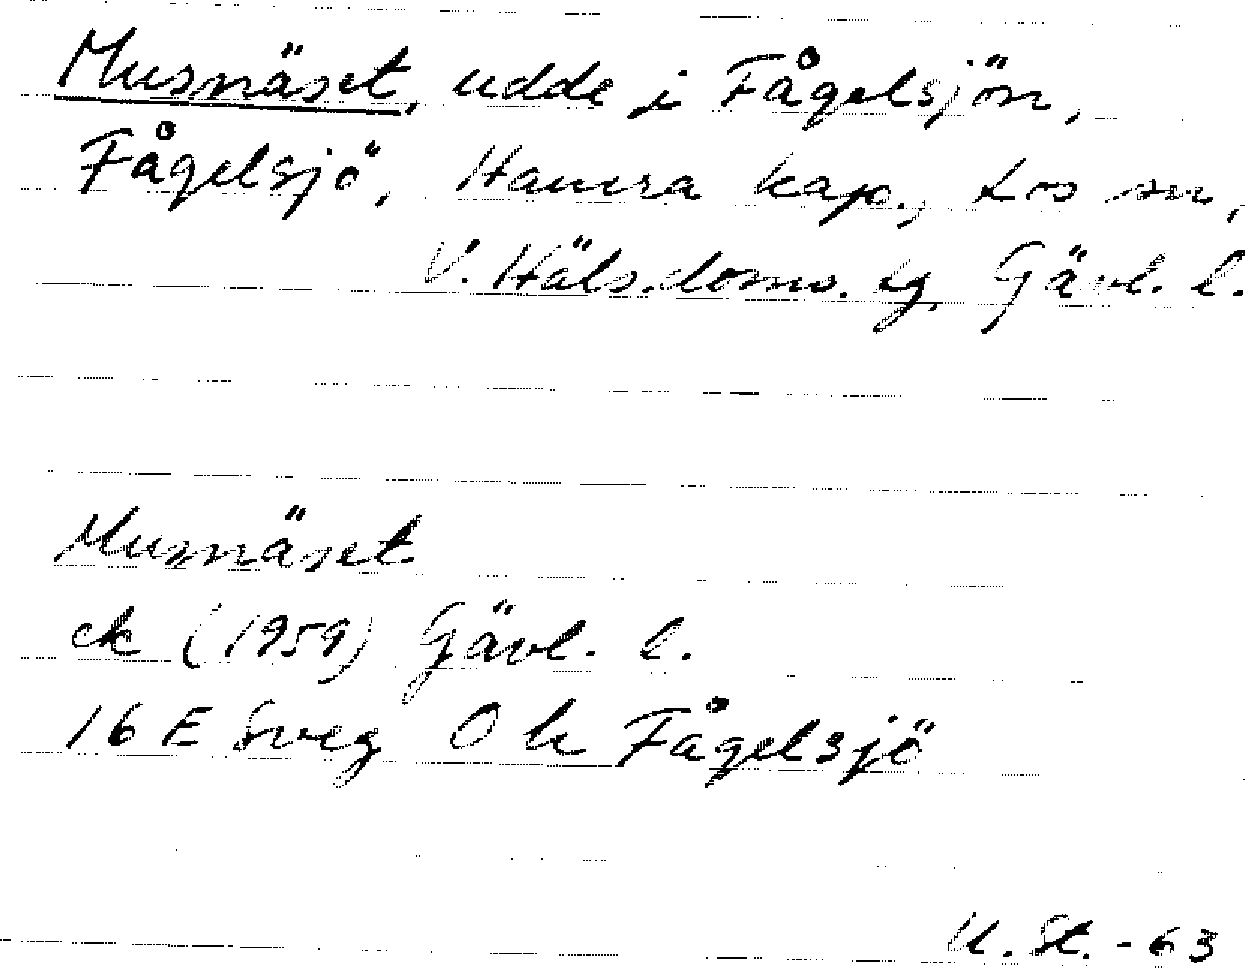 Musnäset, udde i Fågelsjön,
Fågelsjö, Hamra kap., Los sn,
V. Häls. doms. tg, Gävl. l.
Musnäset
ek (1959) Gävl. l.
16 E Sveg 0 h Fågelsjö
U. St. - 63